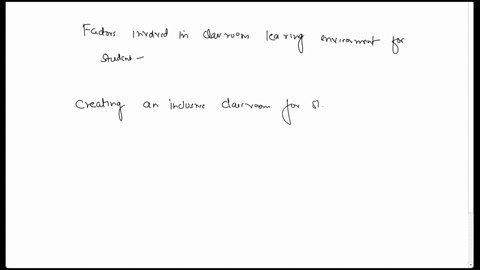 Factors involved in classroom learing environment for
student -
Creating an inclusive classroom for st.